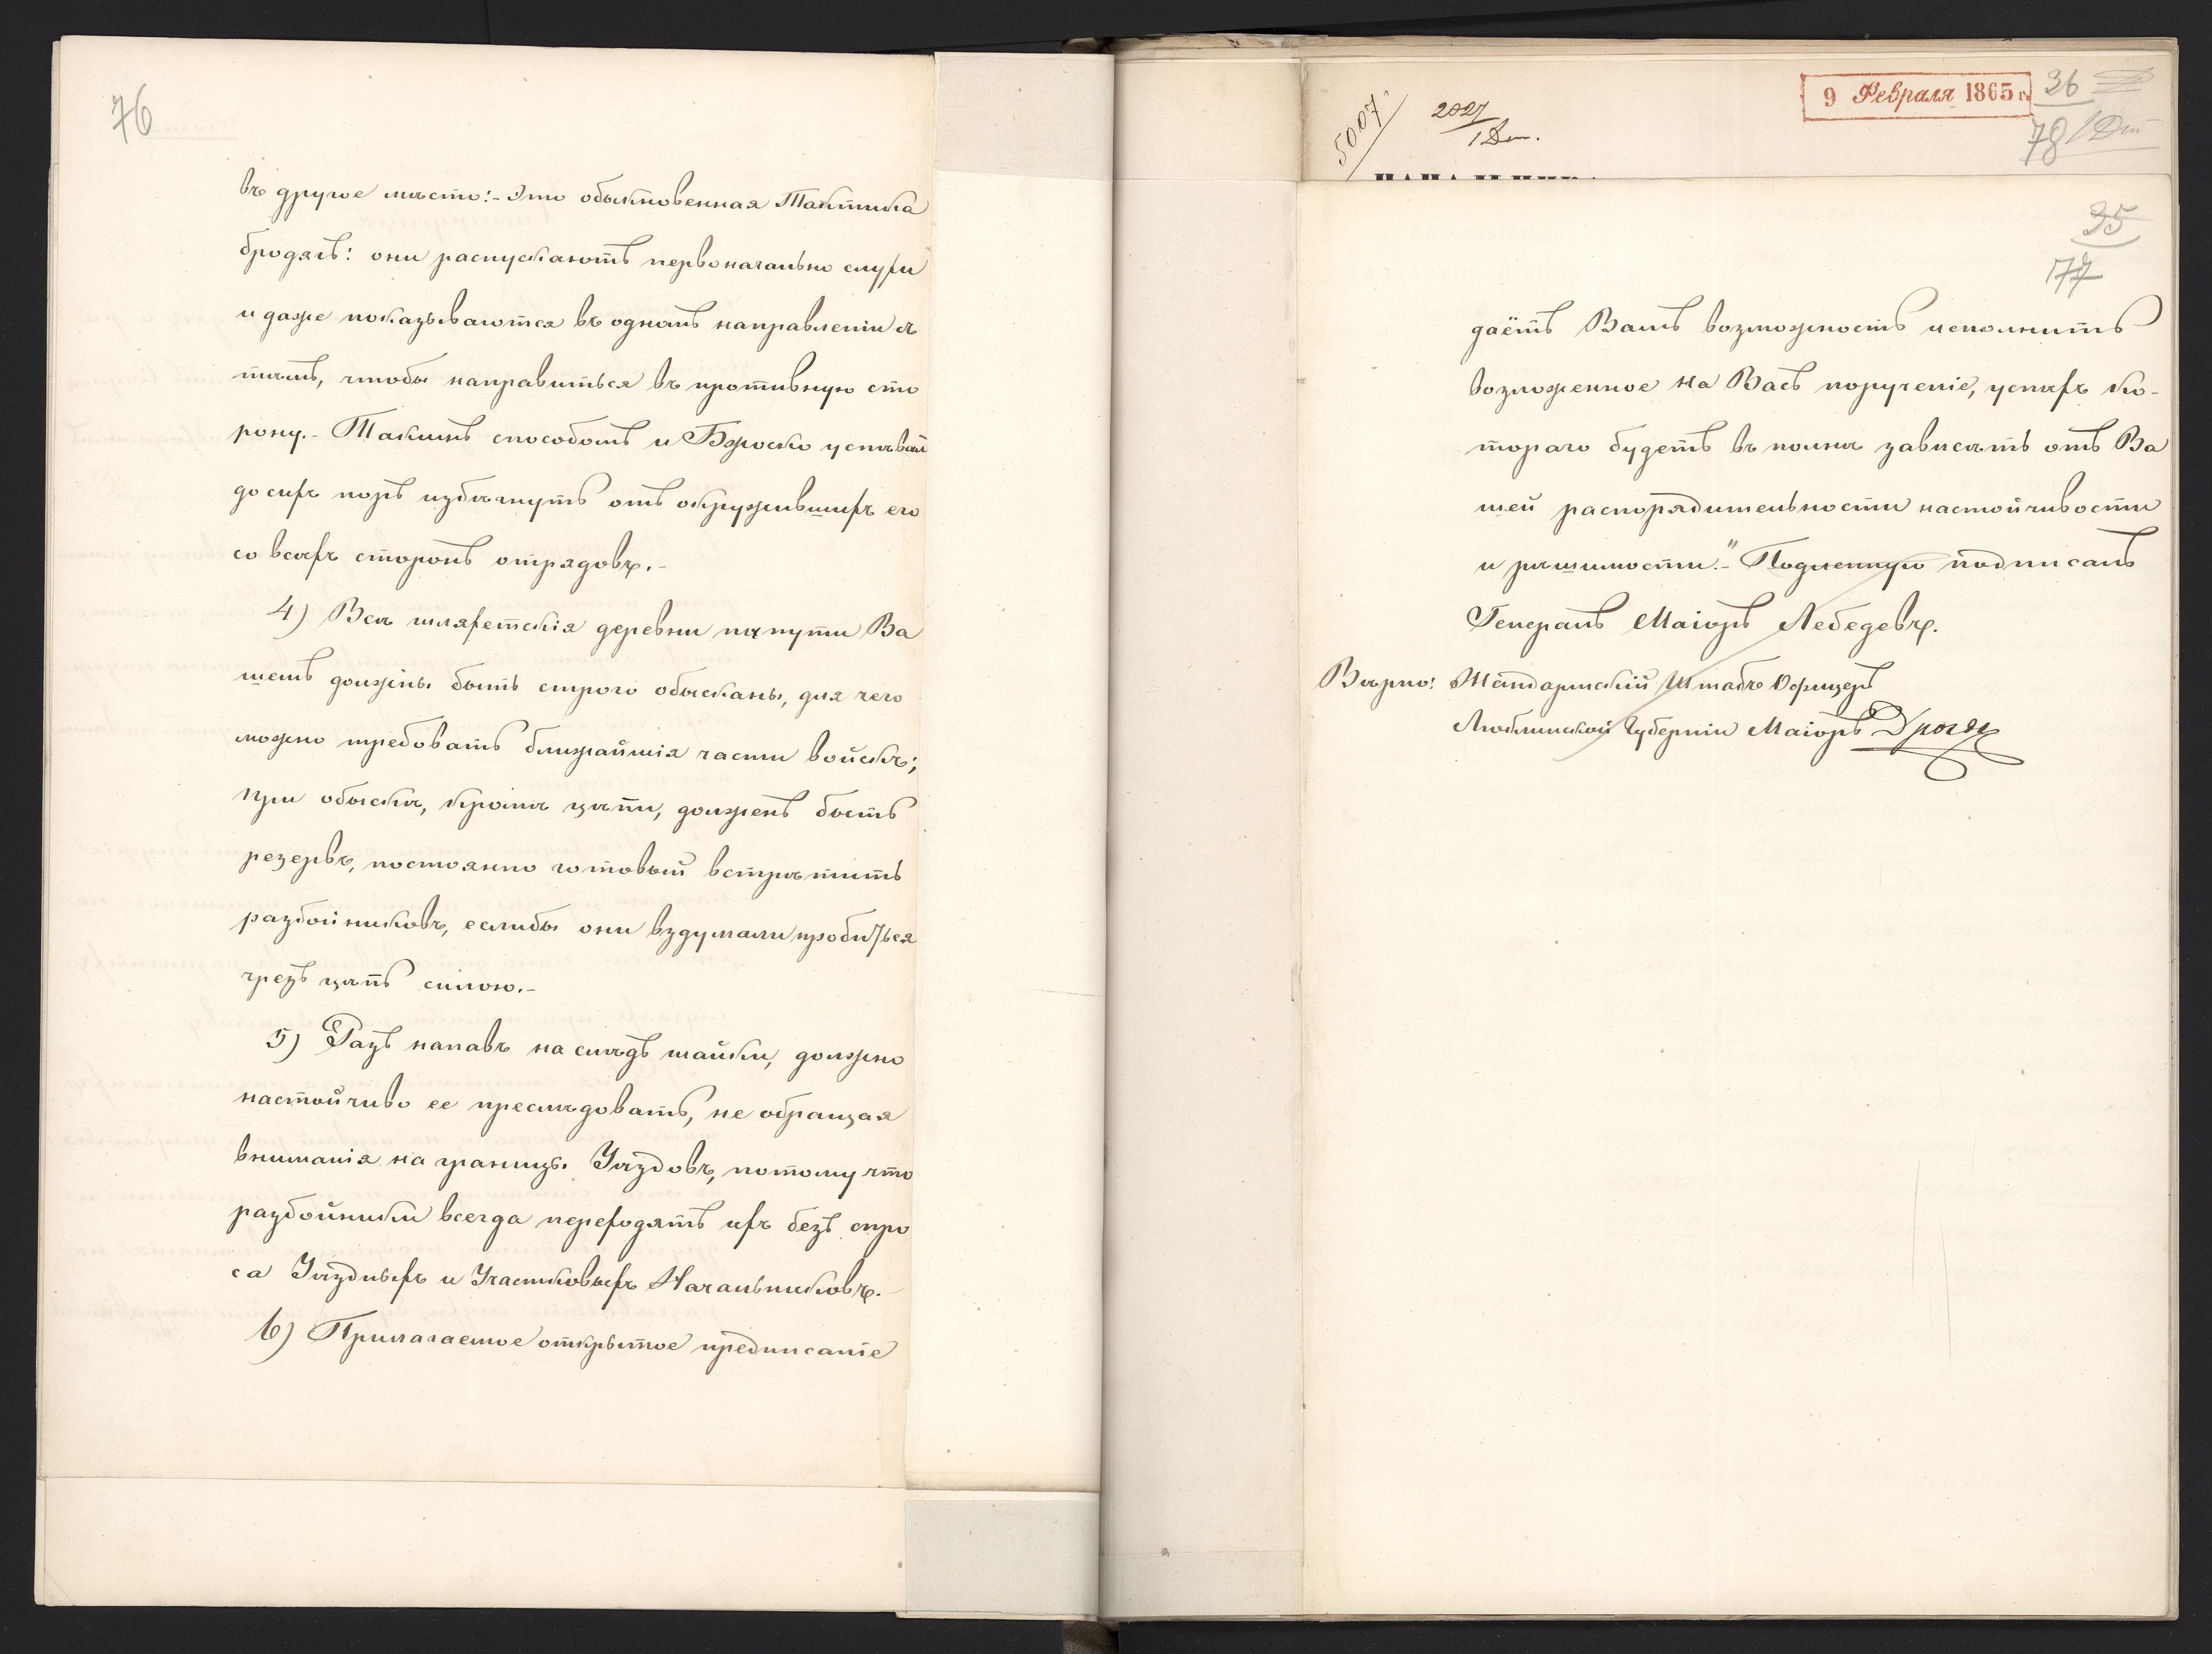 76
въ другое мѣсто:- Это обыкновенная Тактика
бродягъ: они распускаютъ первоначально слухи
и даже показываются въ одномъ направленіи съ
тѣмъ, чтобы направиться въ противную сто
рону.- Такимъ способомъ и Бржоско успѣвал
до сихъ поръ избѣгнуть отъ окружившихъ его
со всѣхъ сторонъ отрядовъ.-
4) Всѣ шляхетскія деревни на пути Ва
шемъ должны быть строго обысканы, для чего
можно требовать ближайшія части войскъ;
при обыскѣ, кромѣ цѣпи, долженъ быть
резервъ, постоянно готовый встрѣтить
разбойниковъ, еслибы они вздумали пробиться
чрезъ цѣпь силою.-
5) Разъ напавъ на слѣдъ шайки, должно
настойчиво ее преслѣдовать, не обращая
вниманія на границы Уѣздовъ, потому что
разбойники всегда переходятъ ихъ безъ спро
са Уѣздныхъ и Участковыхъ Начальниковъ.-
6) Прилагаемое открытое предписаніе
5007
2027
1 Дт.
9 Февраля 1865 г.
36
78 / Дт
35
77
даётъ Вамъ возможность исполнить
возложенное на Васъ порученіе, успѣхъ ко-
тораго будетъ въ полнѣ зависѣть отъ Ва
шей распорядительности настойчивости
и рѣшимости."- Подленную подписалъ
Генералъ Маіоръ Лебедевъ.
Вѣрно: Жандармскій Штабъ Офицеръ
Люблинской Губерніи Маіоръ